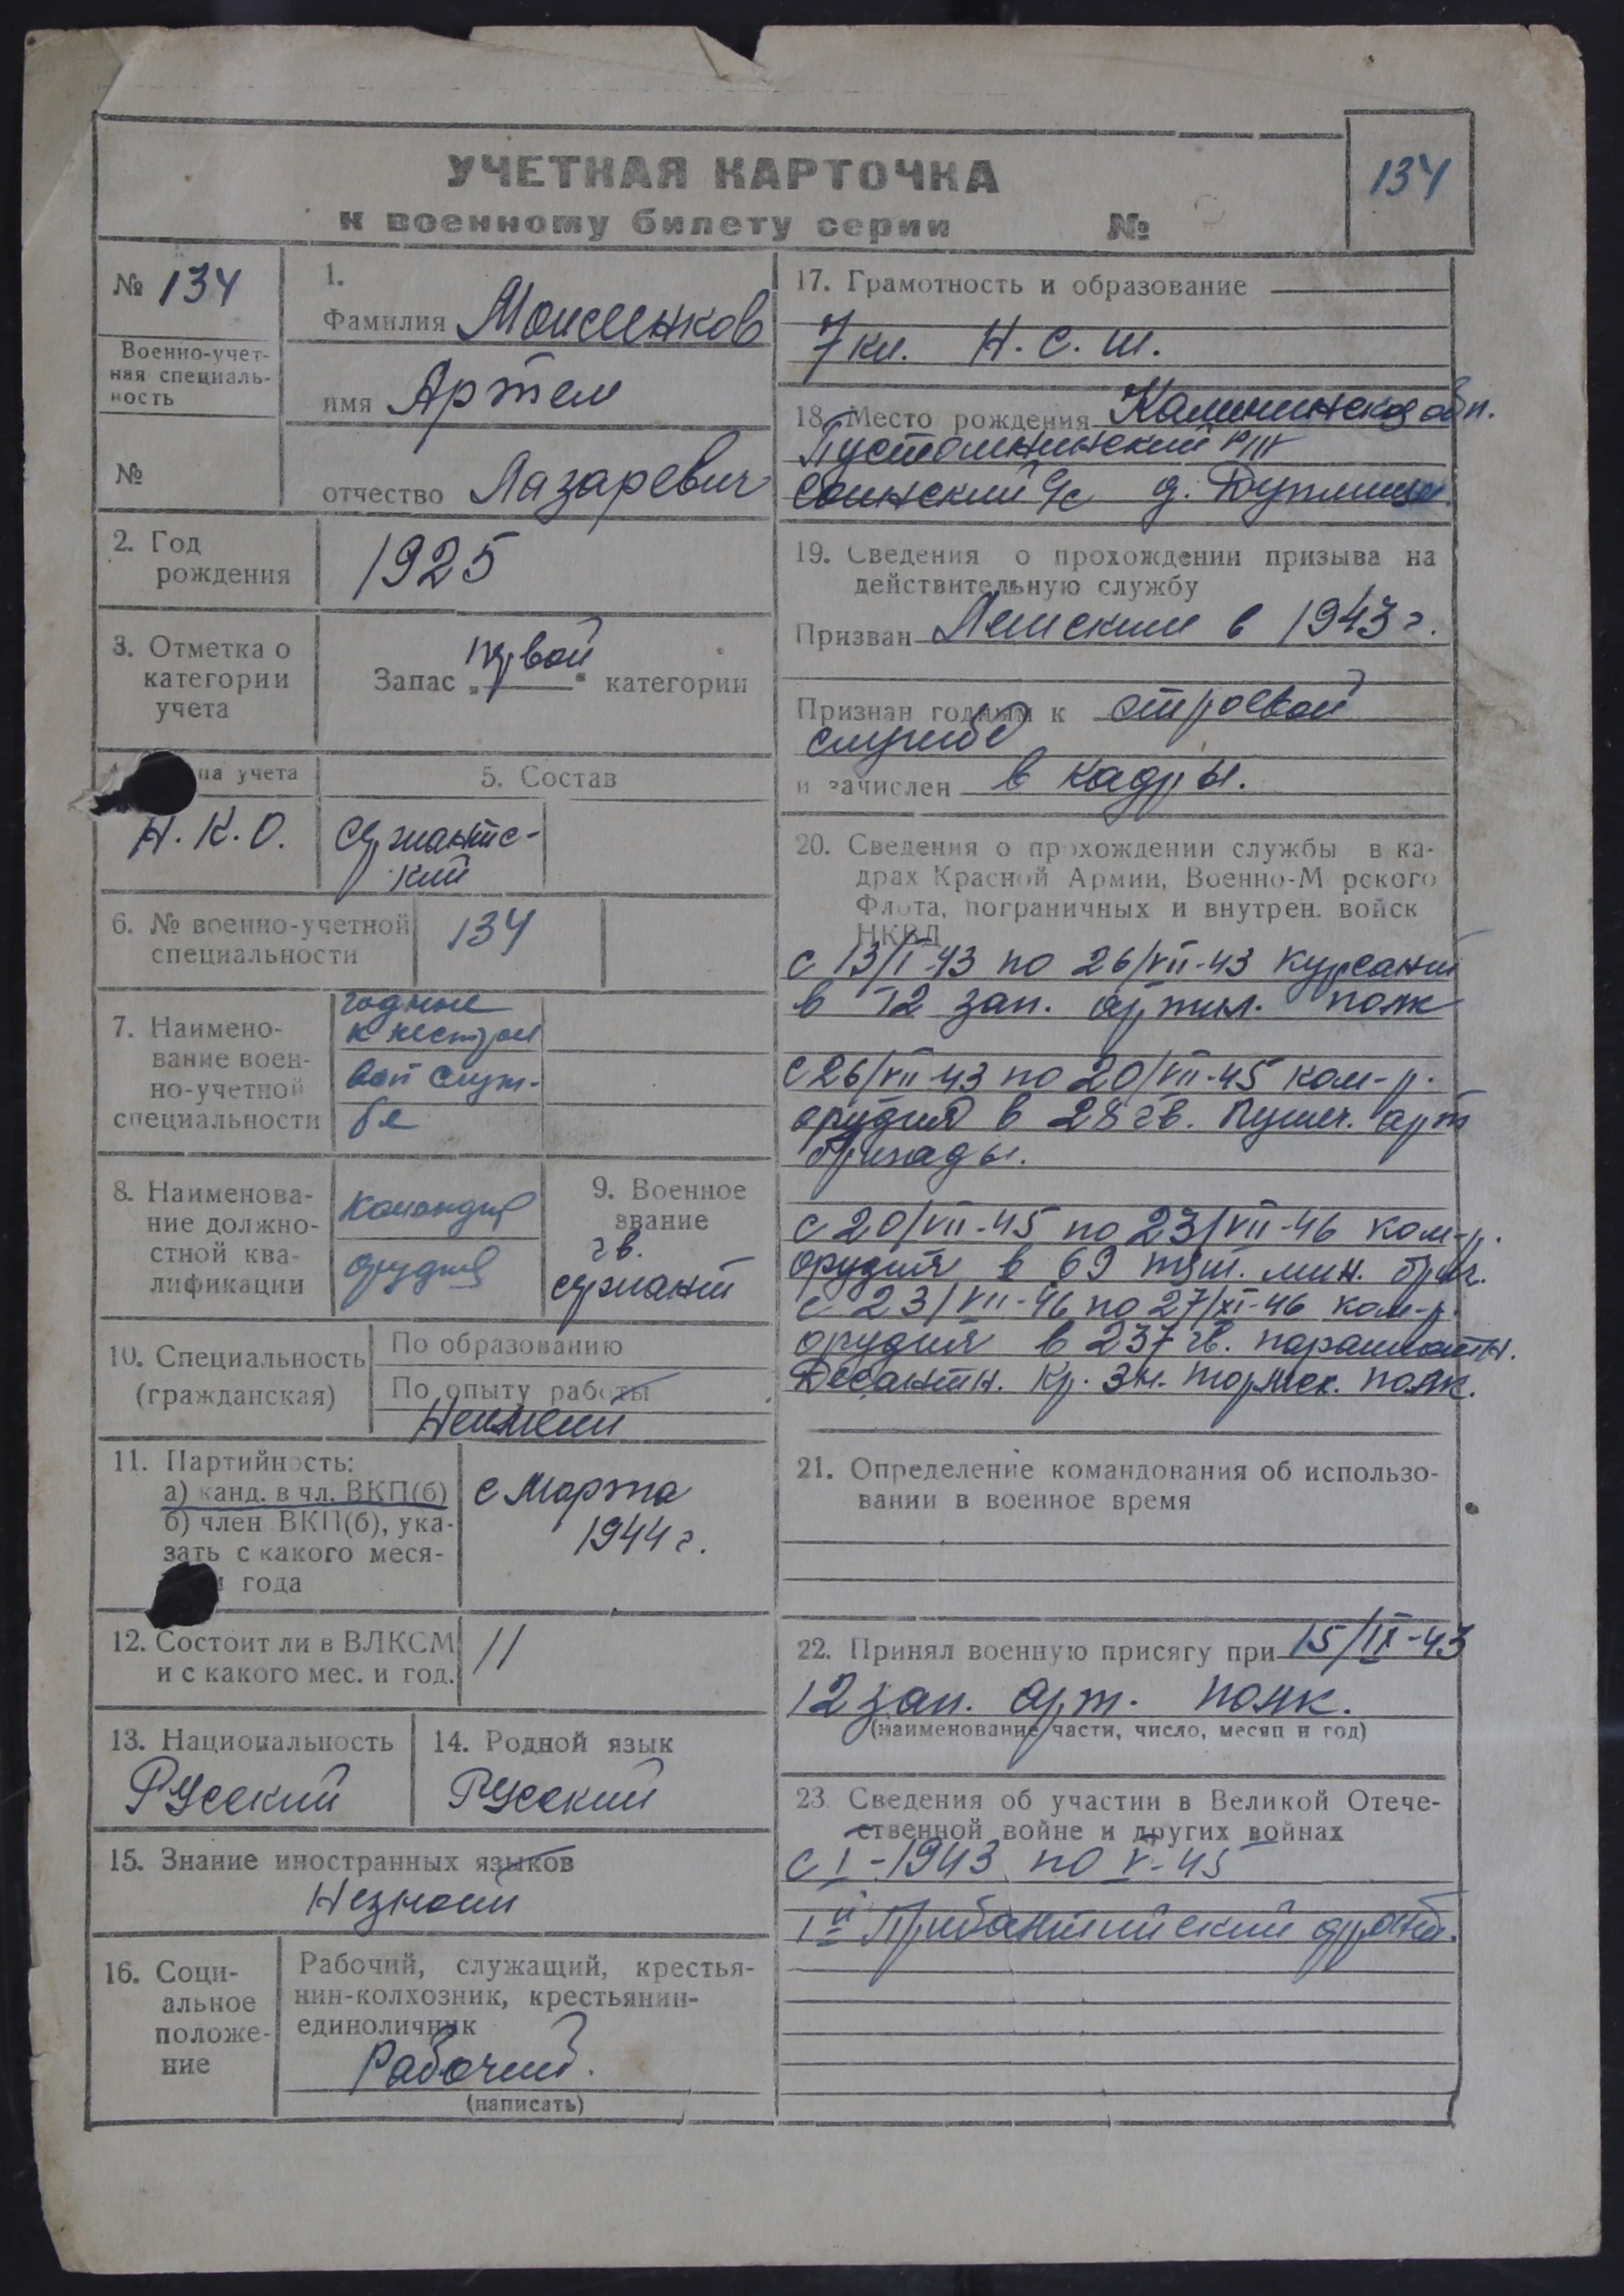 УЧЕТНАЯ КАРТОЧКА
к военному билету серии №
134
№ 134
Военно-учет-
ная специаль-
ность
№
1.
Фамилия Моисеенков
имя Артем
отчество Лазаревич
2. Год
рождения
1925
3. Отметка о
категории
учета
Запас „первой“ категории
па учета
Н.К.О.
5. Состав
Сержантс-
кий
6. № военно-учетной
специальности
134
7. Наимено-
вание воен-
но-учетной
специальности
годные
к нестрое
вой служ-
бе
8. Наименова-
ние должно-
стной ква-
лификации
командир
орудия
9. Военное
звание
гв.
сержант
10. Специальность
(гражданская)
По образованию
По опыту работы
Неимеет
11. Партийность:
а) канд. в чл. ВКП(б)
б) член ВКП(б), ука-
зать с какого меся-
и года
с Марта
1944 г.
12. Состоит ли в ВЛКСМ
и с какого мес. и год.
//
13. Национальность
Русский
14. Родной язык
Русский
15. Знание иностранных языков
Незнает
16. Соци-
альное
положе-
ние
Рабочий, служащий, крестья-
нин-колхозник, крестьянин-
единоличник
Рабочий.
(написать)
17. Грамотность и образование
7 кл. Н.С.Ш.
18. Место рождения Калининская обл.
Пустошкинский р/н
с/с д.
19. Сведения о прохождении призыва на
действительную службу
Призван в 1943 г.
Признан годным к строевой
службе
и зачислен в кадры.
20. Сведения о прохождении службы в ка-
драх Красной Армии, Военно-Морского
Флота, пограничных и внутрен. войск
НКВД
с 13/I-43 по 26/VII-43 курсант
в 12 зап. артил. полк
с 26/VII-43 по 20/VII-45 ком-р.
орудия в 28 гв. Пушеч. арт
бригады.
с 20/VII-45 по 23/VII-46 ком-р.
орудия в 69 тяж. мин. бриг.
с 23/VII-46 по 27/XI-46 ком-р.
орудия в 237 гв. парашютн.
Десантн. Кр. Зн. полк.
21. Определение командования об использо-
вании в военное время
22. Принял военную присягу при 15/IX-43
12 зап. арт. полк.
(наименование части, число, месяц и год)
23. Сведения об участии в Великой Отече-
ственной войне и других войнах
с I-1943 по V-45
Iй Прибалтийский фронт.